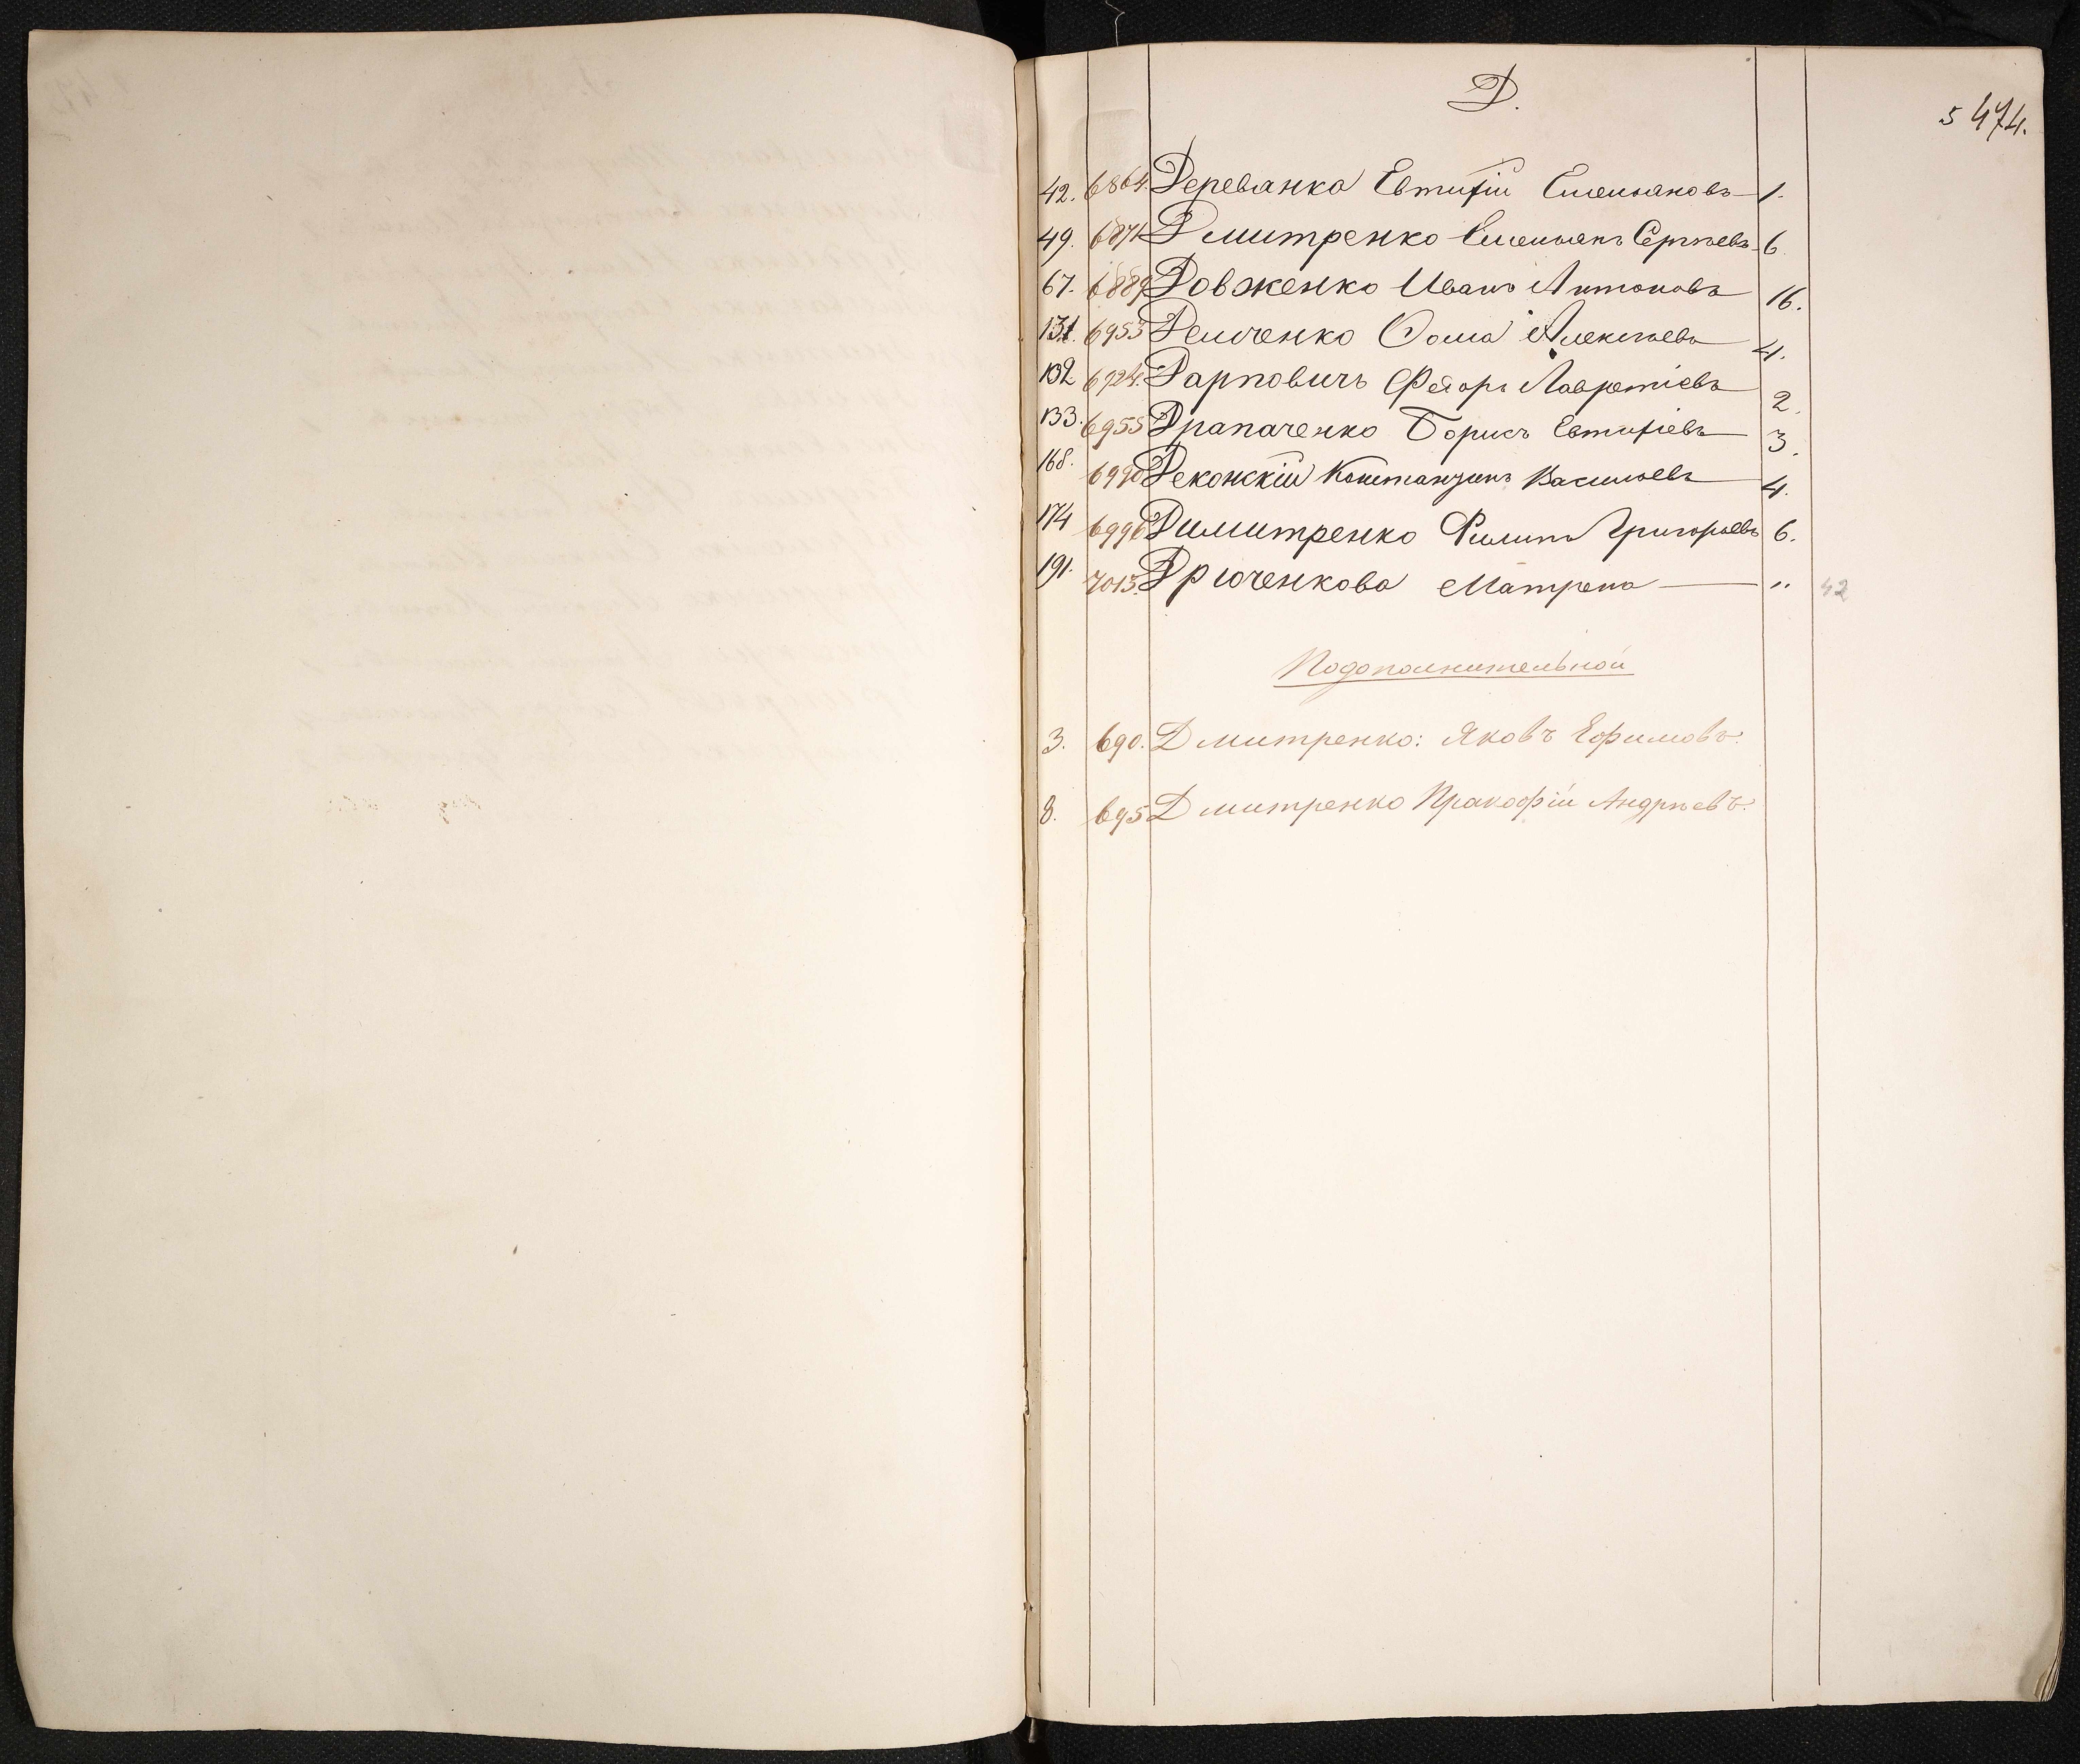 Д.
5 474.
42. 6864. Дереванка Евтихій Емельяновъ 1.
49. 6871 Дмитренко Емельянъ Сергѣевъ 6.
67. 6889 Довженко Иванъ Антоновъ 16.
131. 6953 Демченко Ѳома Алексѣевъ 4.
132 6924. Дарповичъ Федоръ Лаврентіевъ 2.
133. 6955 Драпаченко Борисъ Евтихіевъ 3.
168. 6990 Деконскій Константинъ Васильевъ 4.
174 6996 Димитренко Филипъ Григорьевъ 6.
191. 7013. Дрюченкова Матрена — „ 42
Подополнительной
3. 690. Дмитренко: Яковъ Ефимовъ.
8. 695 Дмитренко Пракофій Андрѣевъ.